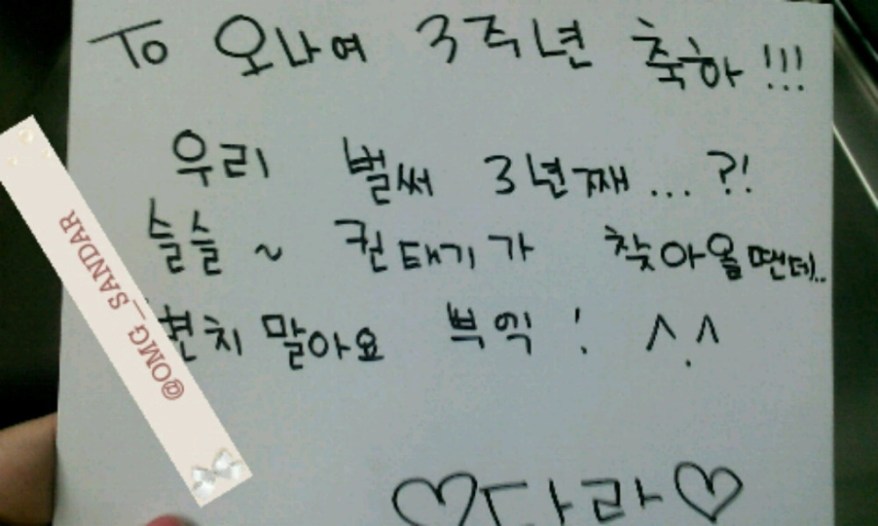 To 오나여 3주년 축하!!!
우리 벌써 3년째...?!
슬슬~ 권태기가 찾아올땐데..
변치 말아요 뿌잉! ^.^
♡다라♡
@OMG_SANDAR